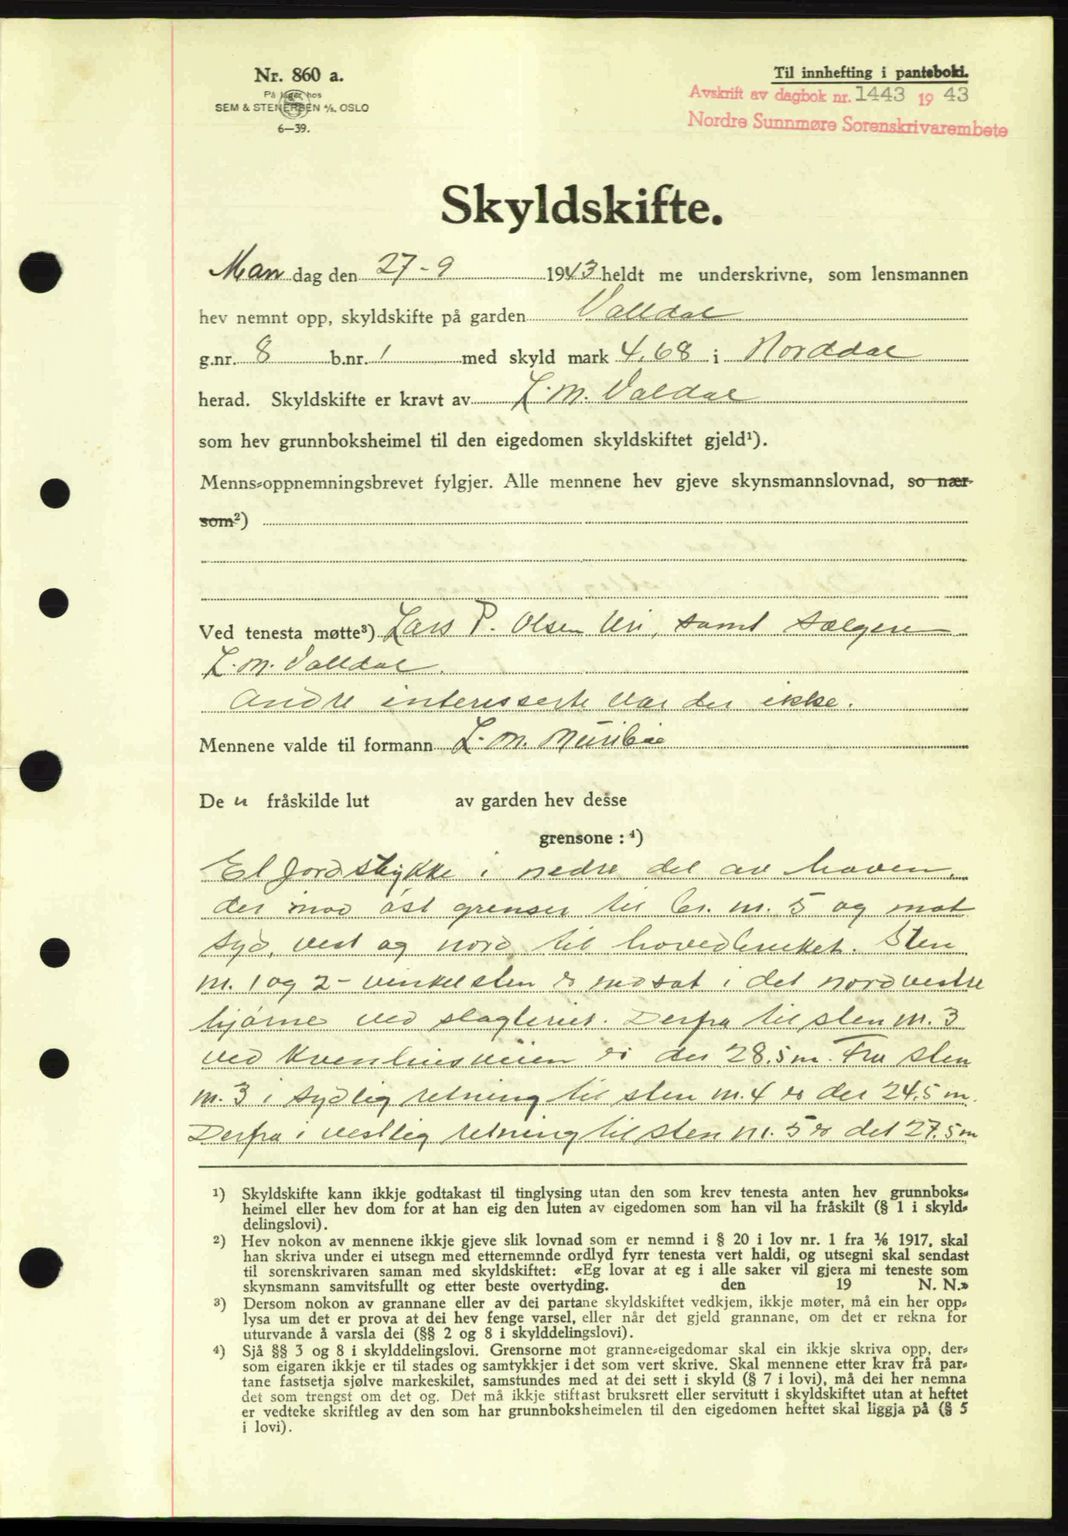 Nr. 860 a.
På lager hos
SEM & STENERSEN A/S, OSLO
6—39.
Til innhefting i pantebok.
Avskrift av dagbok nr. 1443 1943
Nordre Sunnmøre Sorenskrivarembete
Skyldskifte.
Man dag den 27-9 1943 heldt me underskrivne, som lensmannen
hev nemnt opp, skyldskifte på garden Valldal
g.nr. 8 b.nr. 1 med skyld mark 4,68 i Norddal
herad. Skyldskifte er kravt av L. M. Valdal
som hev grunnboksheimel til den eigedomen skyldskiftet gjeld¹).
Menns-oppnemningsbrevet fylgjer. Alle mennene hev gjeve skynsmannslovnad, so nær-
som²)
Ved tenesta møtte³) Lars P. Olsen Uri, samt sælgeren
L. M. Valldal.
Andre interesserte var der ikke.
Mennene valde til formann L. M. Muribø
De n fråskilde lut av garden hev desse
grensone : ⁴)
Et jordstykke i nedre del av haven,
der mod øst grenser til br. nr. 5 og mot
syd, vest og nord til hovedbruket. Sten
nr. 1 og 2 - vinkelsten er nedsat i det nordvestre
hjørne ved slagteriet. Derfra til sten nr. 3
ved Kvenhusveien er der 28.5 m. Fra sten
nr. 3 i sydlig retning til sten nr. 4 er der 24,5 m.
Derfra i vestlig retning til sten nr. 5 er det 27.5 m
¹) Skyldskifte kann ikkje godtakast til tinglysing utan den som krev tenesta anten hev grunnboks-
heimel eller hev dom for at han eig den luten av eigedomen som han vil ha fråskilt (§ 1 i skyld-
delingslovi).
²) Hev nokon av mennene ikkje gjeve slik lovnad som er nemnd i § 20 i lov nr. 1 fra 1/6 1917, skal
han skriva under ei utsegn med etternemnde ordlyd fyrr tenesta vert haldi, og utsegni skal sendast
til sorenskrivaren saman med skyldskiftet: «Eg lovar at eg i alle saker vil gjera mi teneste som
skynsmann samvitsfullt og etter beste overtyding. den 19 N. N.»
³) Dersom nokon av grannane eller av dei partane skyldskiftet vedkjem, ikkje møter, må ein her opp-
lysa um det er prova at dei hev fenge varsel, eller når det gjeld grannane, om det er rekna for
uturvande å varsla dei (§§ 2 og 8 i skylddelingslovi).
⁴) Sjå §§ 3 og 8 i skylddelingslovi. Grensorne mot granne-eigedomar skal ein ikkje skriva opp, der-
som eigaren ikkje er til stades og samtykkjer i det som vert skrive. Skal mennene etter krav frå par-
tane fastsetja sjølve markeskilet, samstundes med at dei sett i skyld (§ 7 i lovi), må dei her nemna
det som trengst om det og. Det må ikkje stiftast bruksrett eller servitutt i skyldskiftet utan at heftet
er vedteke skriftleg av den som har grunnboksheimelen til den eigedomen heftet skal liggja på (§ 5
i lovi).